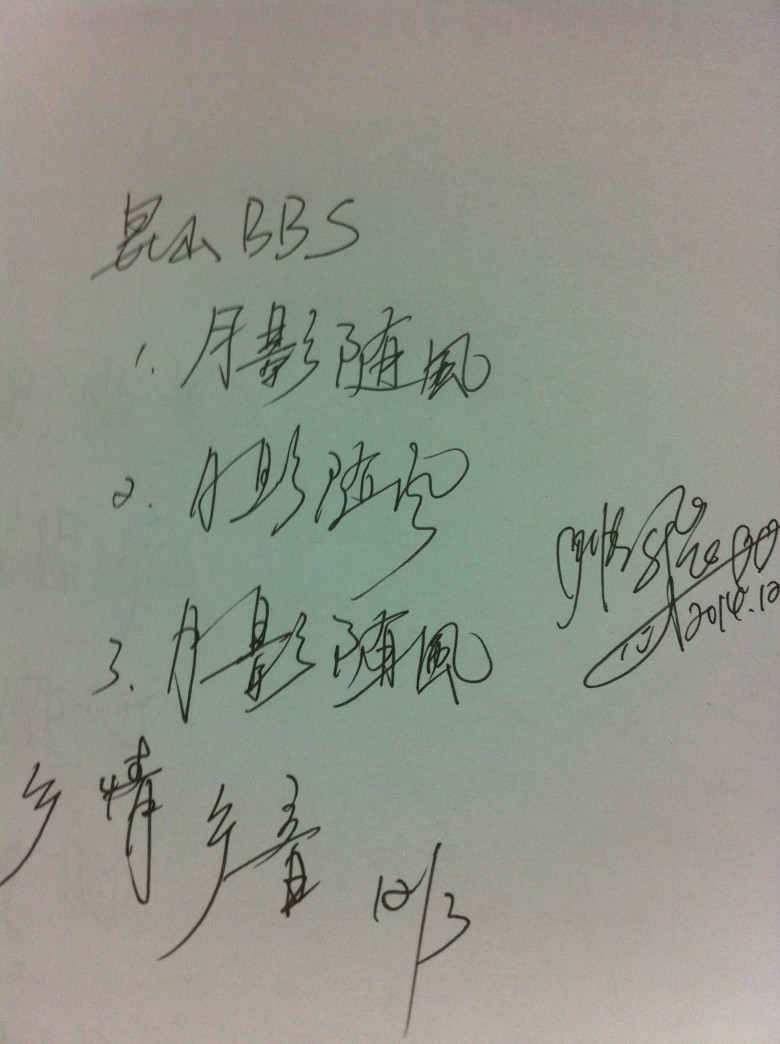 昆山BBS
1. 月影随風
2. 月影随风
3. 月影随風
2014.12
乡情乡音 12/3